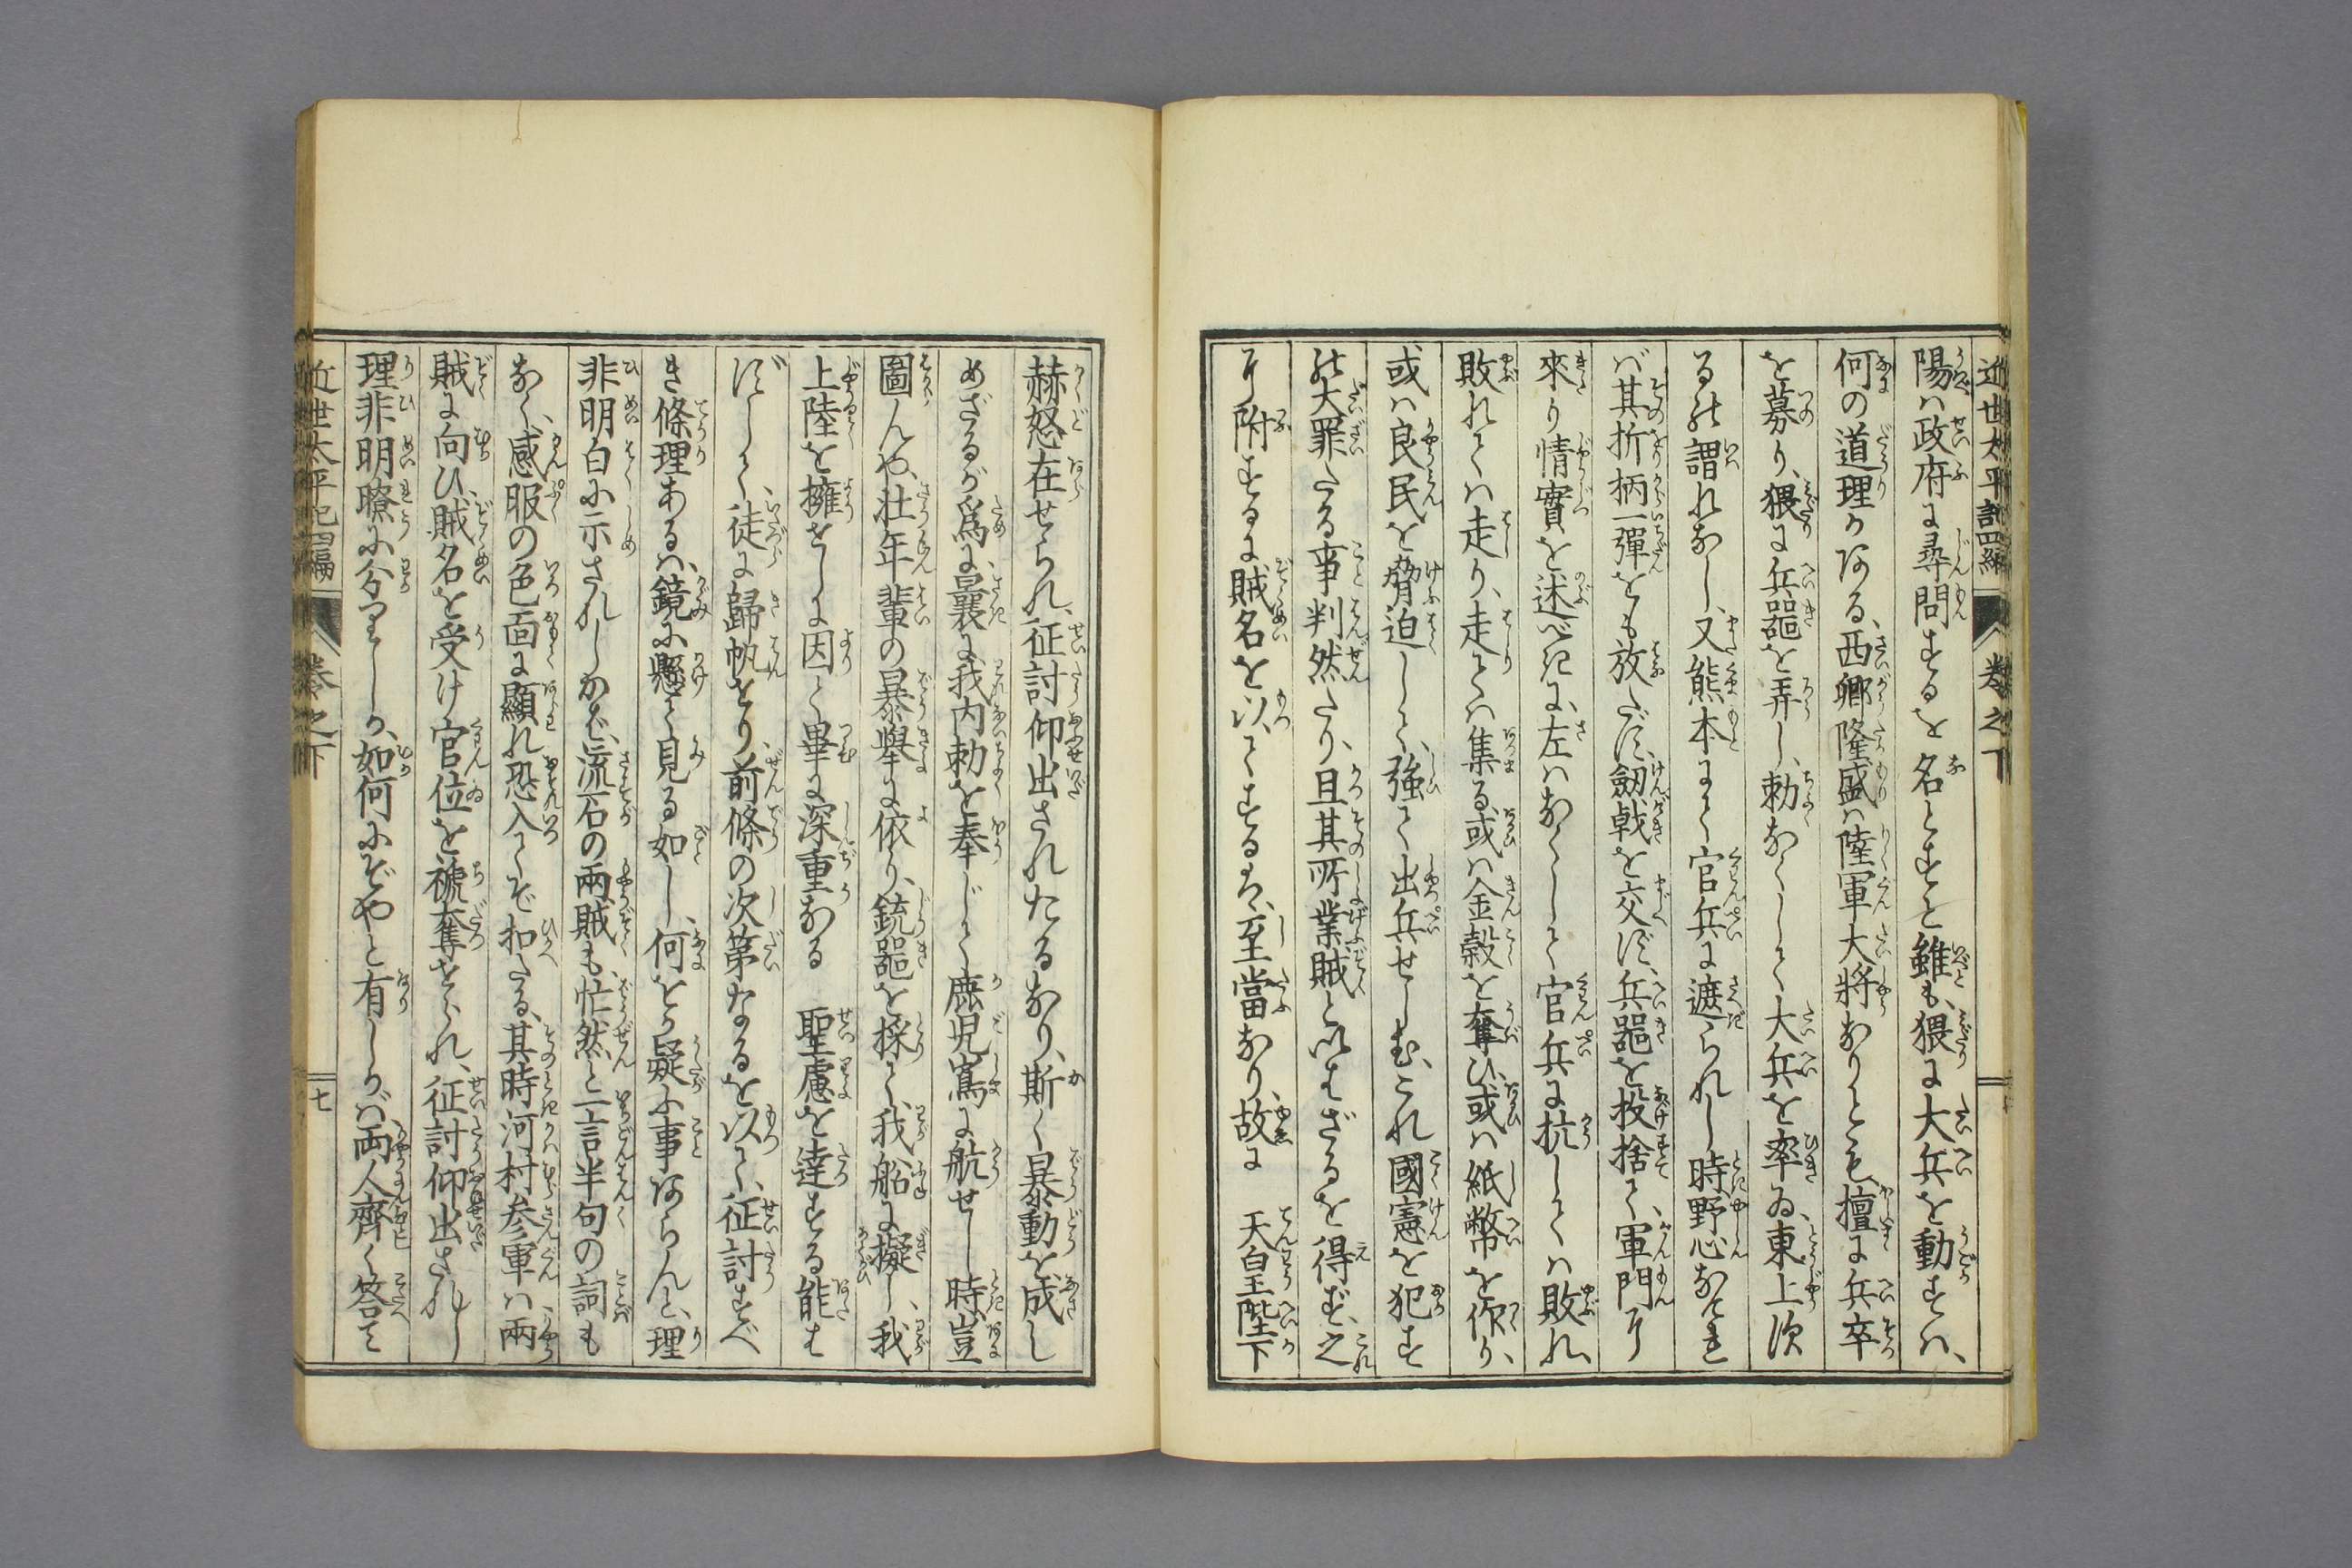 近世太平記四編 卷之下
陽ハ政府に尋問するを名とすと雖も、猥に大兵を動すハ、
何の道理かある、西郷隆盛ハ陸軍大將なりとも、擅に兵卒
を募り、猥に兵器を弄し、勅なくして大兵を率ゐ、東上す
るの謂れなし、又熊本にて官兵に遮られし時野心なけれ
バ其折柄一彈をも放たず、劔戟を交ず、兵器を投捨て、軍門に
來り情實を述べきに、左ハなくして官兵に抗してハ敗れ、
敗れてハ走り、走てハ集る或ハ金穀を奪ひ、或ハ紙幣を作り、
或ハ良民を脅迫して、強て出兵せしむ、これ國憲を犯す
の大罪たる事判然たり、且其所業賊と以はざるを得ず、之
に附するに賊名を以てするは、至當なり、故に 天皇陛下
赫怒在せられ、征討仰出されたるなり、斯く暴動を成し
めざるが爲に、曩に我内勅を奉じて鹿児嶌に航せし時豈
圖んや、壮年輩の暴擧に依り、銃器を採て、我船に擬し、我
上陸を擁せしに因て畢に深重なる 聖慮を達する能は
ずして、徒に歸帆せり、前條の次第なるを以て、征討すべ
き條理あるハ、鏡に懸て見る如し、何をか疑ふ事あらんと、理
非明白に示されしかバ、流石の兩賊も、忙然と一言半句の詞も
なく、感服の色面に顯れ恐入てぞ扣たる、其時河村参軍ハ兩
賊に向ひ、賊名を受け官位を褫奪せられ、征討仰出されし
理非明瞭に分りしか、如何にぞやと有しかバ両人齊く答て
近世太平記四編 卷之下 七